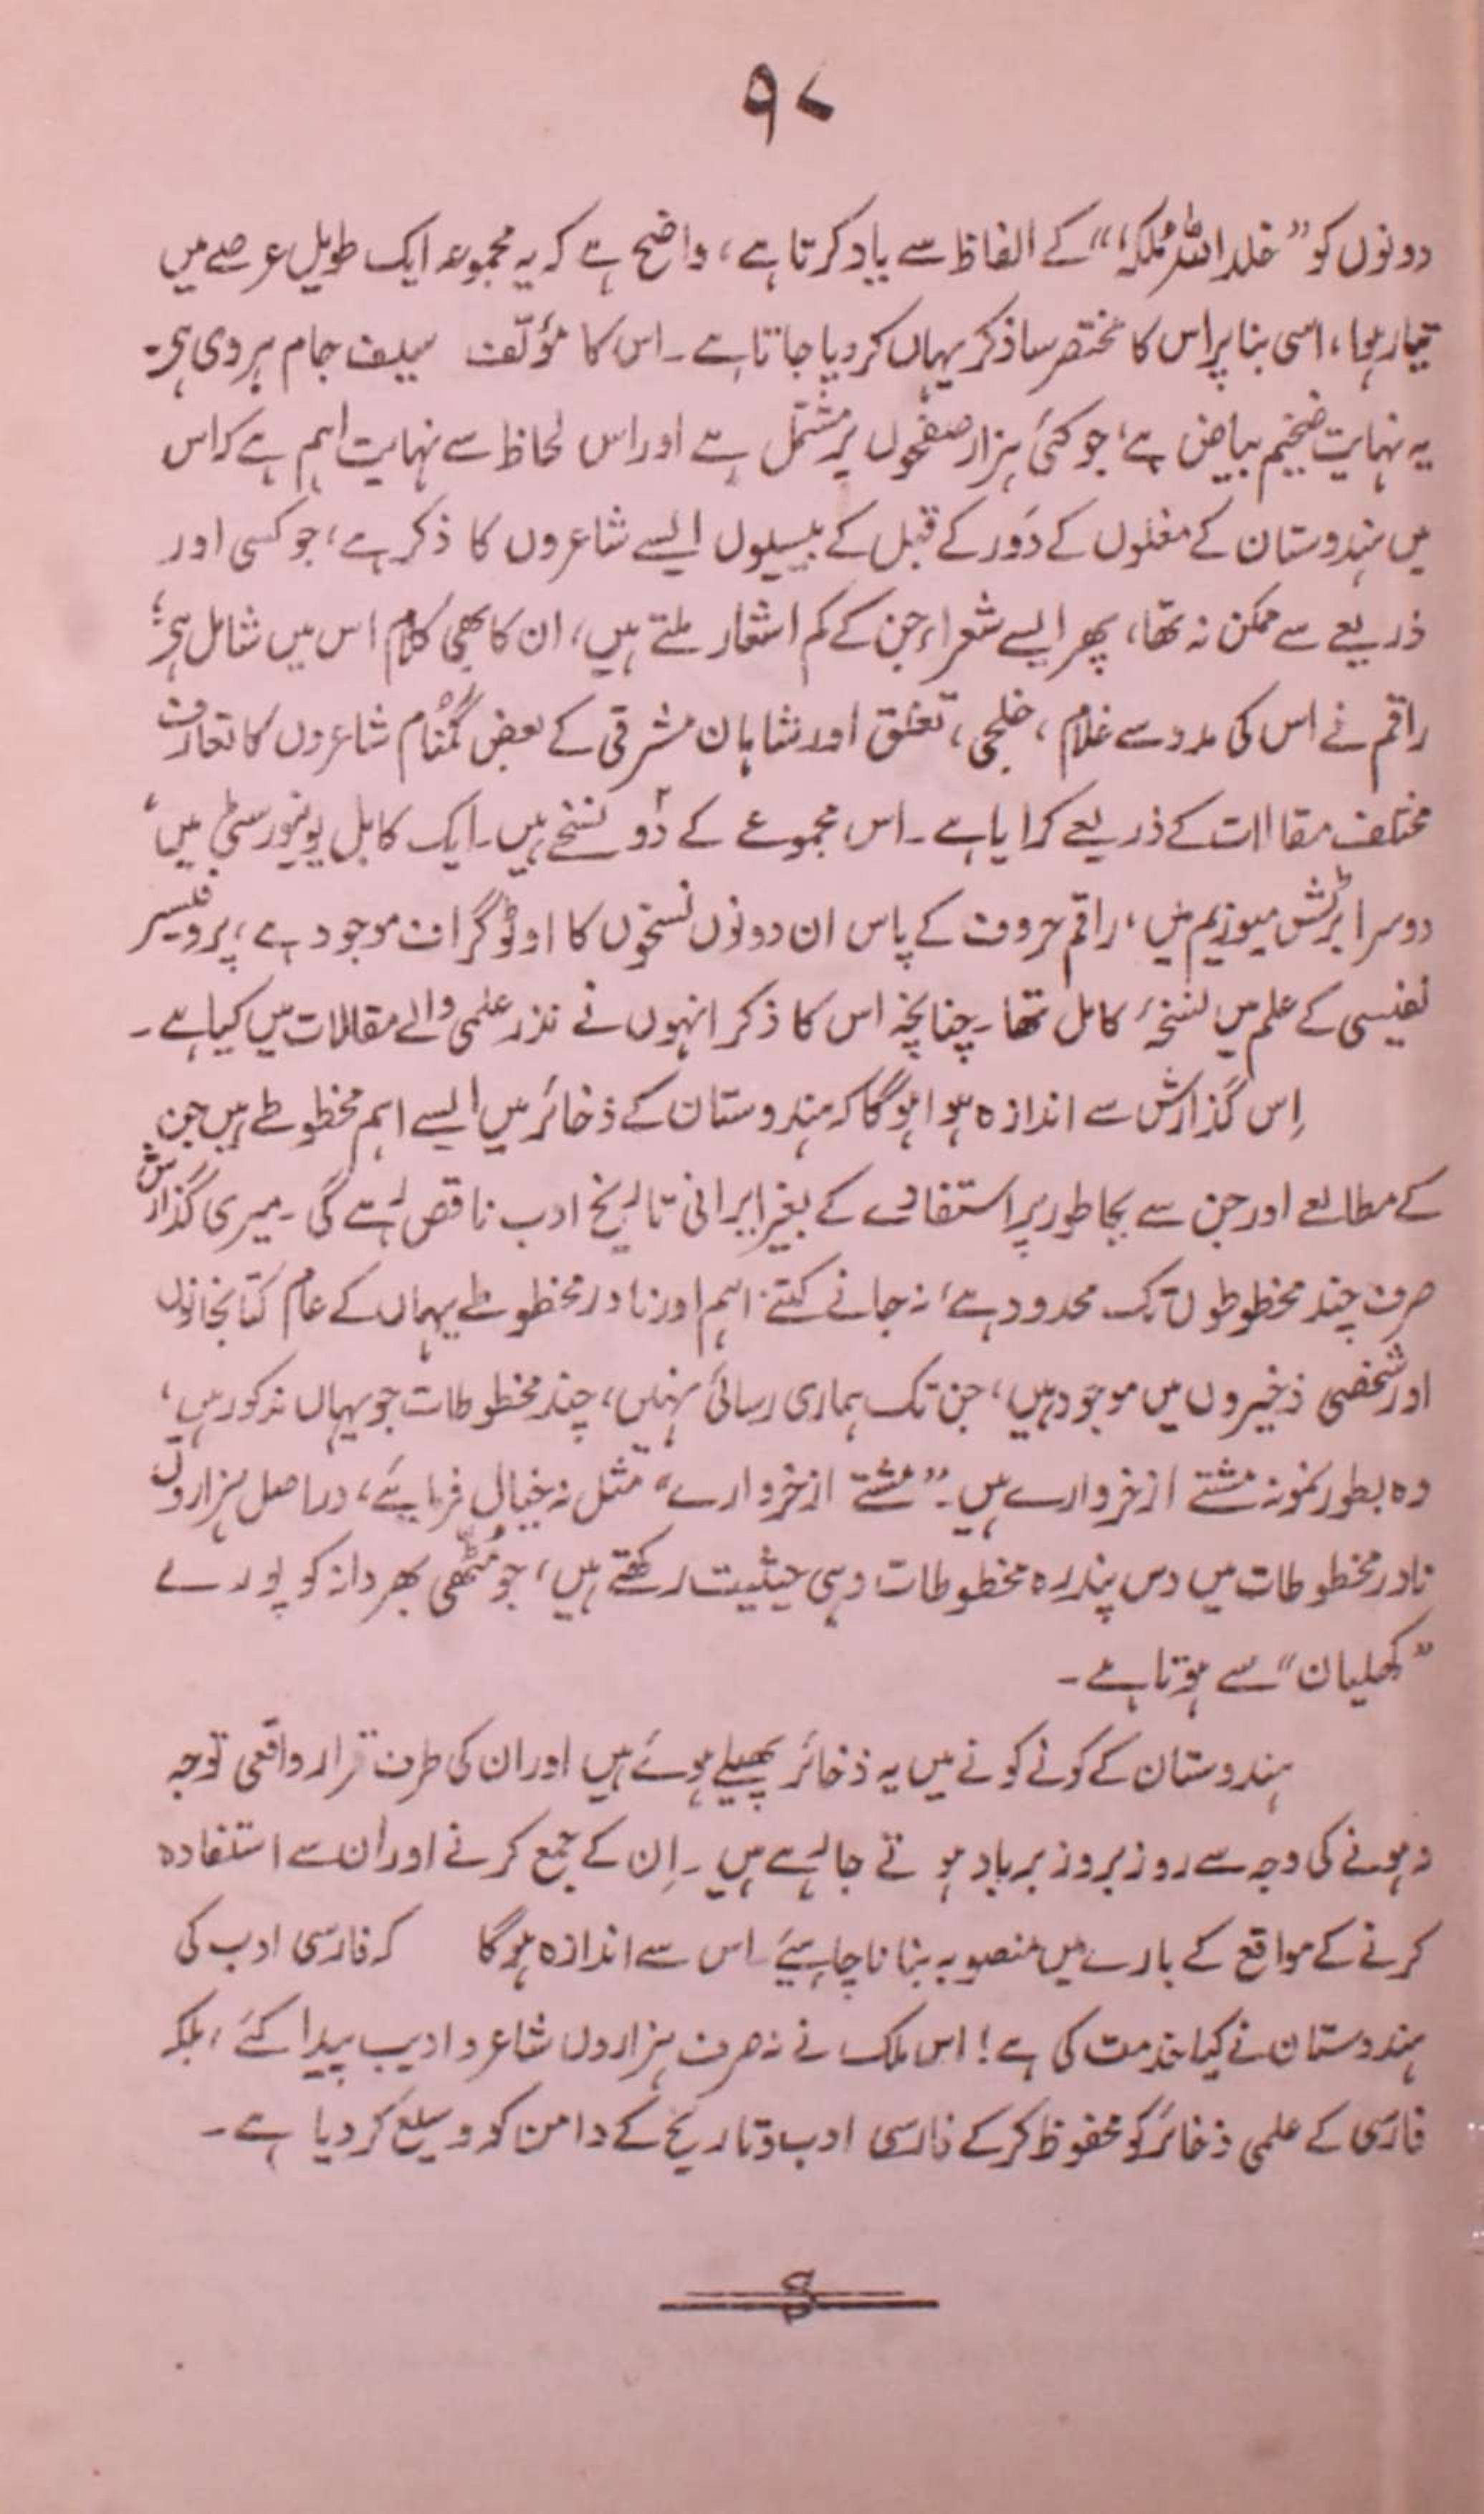 ۹۷
دونوں کو ”خلد اللہ ملکہ“ کے الفاظ سے یاد کرتا ہے، واضح ہے کہ یہ مجموعہ ایک طویل عرصے میں
تیار ہوا، اسی بنا پر اس کا مختصر سا ذکر یہاں کر دیا جاتا ہے۔ اس کا مؤلّف سیف جام ہروی ہی۔
یہ نہایت ضخیم بیاض ہے، جو کئی ہزار صفحوں پر مشتمل ہے اور اس لحاظ سے نہایت اہم ہے کہ اس
میں ہندوستان کے مغلوں کے دَور کے قبل کے بیسیوں ایسے شاعروں کا ذکر ہے، جو کسی اور
ذریعے سے ممکن نہ تھا، پھر ایسے شعراء جن کے کم اشعار ملتے ہیں، ان کا بھی کلام اس میں شامل ہی،
راقم نے اس کی مدد سے غلام، خلجی، تغلق اور شاہان مشرقی کے بعض گمنام شاعروں کا تعارف
مختلف مقالات کے ذریعے کرایا ہے۔ اس مجموعے کے دو نسخے ہیں۔ ایک کابل یونیورسٹی میں،
دوسرا برٹش میوزیم میں، راقم حروف کے پاس ان دونوں نسخوں کا اوٹوگراف موجود ہے، پروفیسر
نفیسی کے علم میں نسخۂ کامل تھا۔ چنانچہ اس کا ذکر انہوں نے نذر علمی والے مقالات میں کیا ہے۔
اِس گذارش سے اندازہ ہوا ہوگا کہ ہندوستان کے ذخائر میں ایسے اہم مخطوطے ہیں جن
کے مطالعے اور جن سے بجا طور پر استفادے کے بغیر ایرانی تاریخ ادب ناقص رہے گی۔ میری گذارش
صرف چند مخطوطوں تک محدود ہے، نہ جانے کتنے اہم اور نادر مخطوطے یہاں کے عام کتابخانوں
اور شخصی ذخیروں میں موجود ہیں، جن تک ہماری رسائی نہیں، چند مخطوطات جو یہاں مذکور ہیں،
وہ بطور نمونہ مشتے از خروارے ہیں۔ ”مشتے از خروارے“ مثل نہ خیال فرمایئے، دراصل ہزاروں
نادر مخطوطات میں دس پندرہ مخطوطات وہی حیثیت رکھتے ہیں، جو مُٹھی بھر دانہ کو پورے
”کھلیان“ سے ہوتا ہے۔
ہندوستان کے کونے کونے میں یہ ذخائر پھیلے ہوئے ہیں اور ان کی طرف قرار واقعی توجہ
نہ ہونے کی وجہ سے روز بروز برباد ہوتے جا رہے ہیں۔ اِن کے جمع کرنے اور اُن سے استفادہ
کرنے کے مواقع کے بارے میں منصوبہ بنانا چاہیئے۔ اس سے اندازہ ہوگا کہ فارسی ادب کی
ہندوستان نے کیا خدمت کی ہے! اس ملک نے نہ صرف ہزاروں شاعر و ادیب پیدا کئے، بلکہ
فارسی کے علمی ذخائر کو محفوظ کر کے فارسی ادب و تاریخ کے دامن کو وسیع کر دیا ہے۔